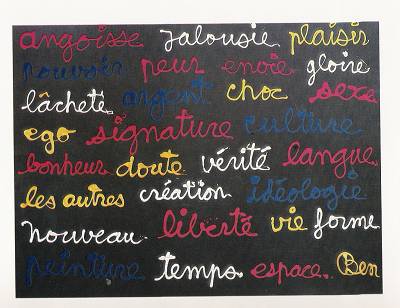 angoisse jalousie plaisir
pouvoir peur envie gloire
lâcheté argent choc sexe
ego signature culture
bonheur doute vérité langue
les autres création idéologie
nouveau liberté vie forme
peinture temps espace. Ben